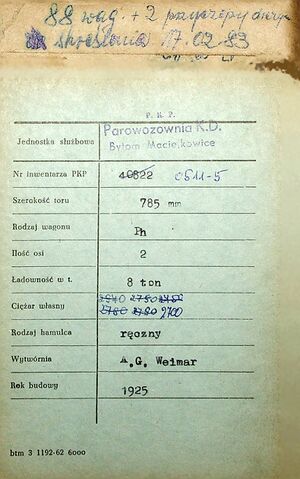 88 wag. + 2 przyczepy
skreślenia 17.02-83
P. K. P.
Jednostka służbowa Parowozownia K.D.
Bytom Maciejkowice
Nr inwentarza PKP 40822 0511-5
Szerokość toru 785 mm
Rodzaj wagonu Ph
Ilość osi 2
Ładowność w t. 8 ton
Ciężar własny 2840 2750
2780 2780 2700
Rodzaj hamulca ręczny
Wytwórnia A.G. Weimar
Rok budowy 1925
btm 3 1192-62 6000